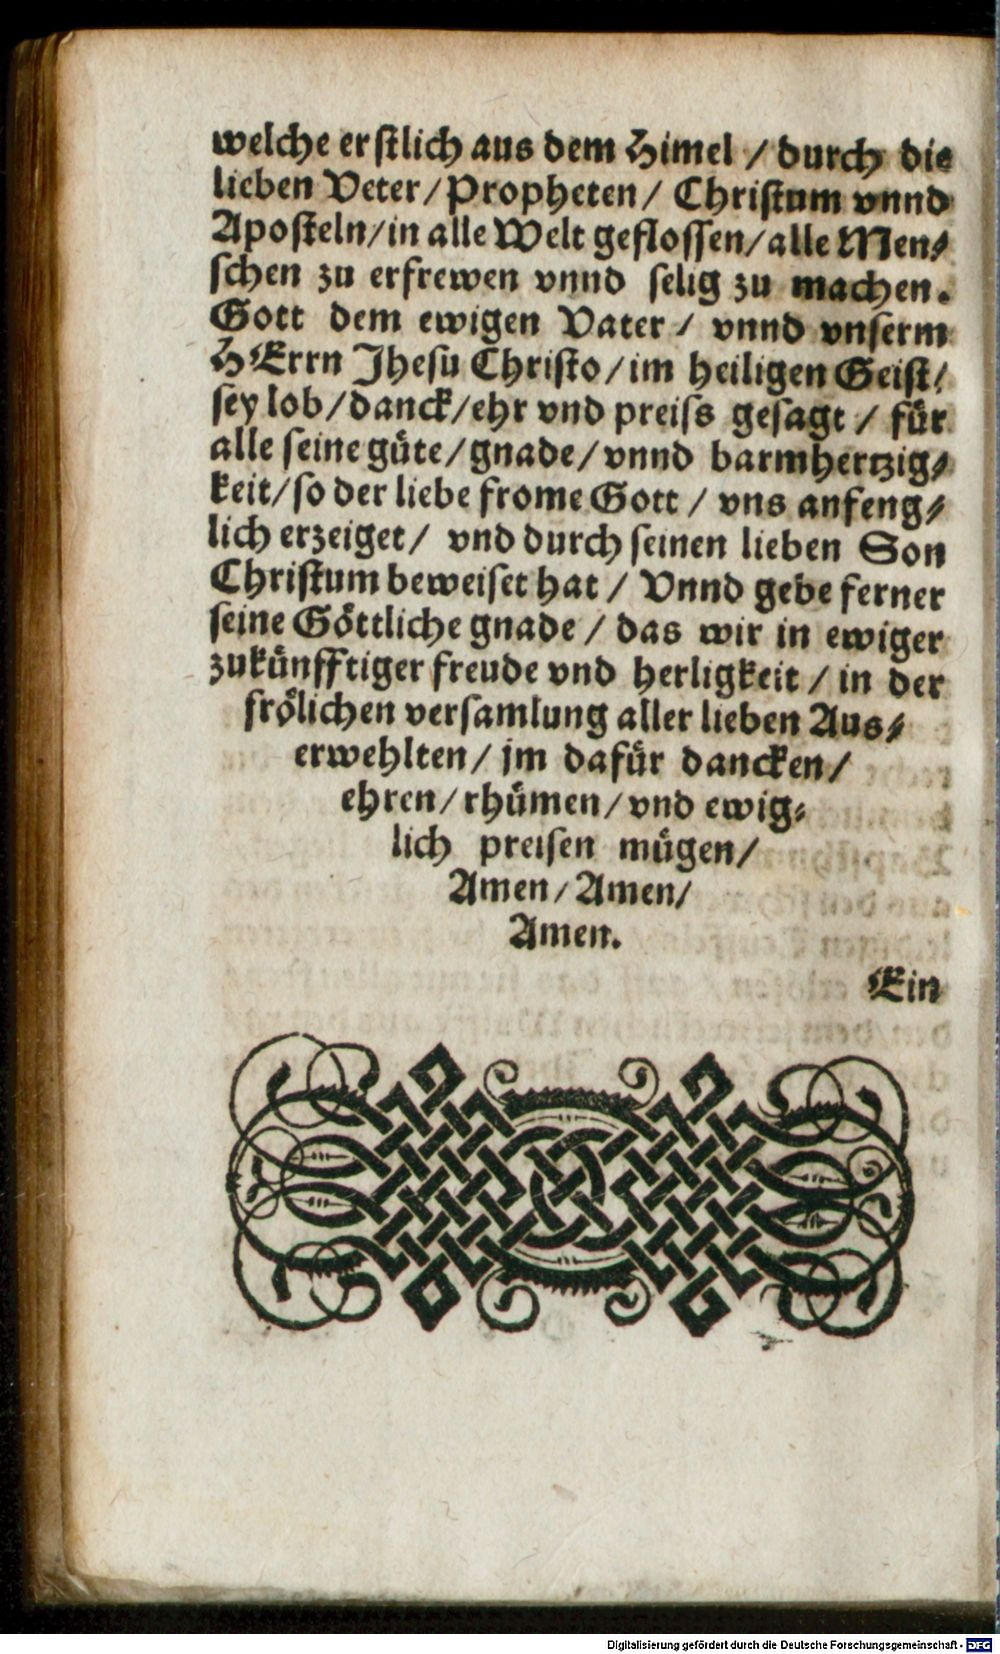 welche erstlich aus dem Himel / durch die
lieben Veter / Propheten / Christum vnnd
Aposteln / in alle Welt geflossen / alle Men⸗
schen zu erfrewen vnnd selig zu machen.
Gott dem ewigen Vater / vnnd vnserm
HErrn Jhesu Christo / im heiligen Geist /
sey lob / danck / ehr vnd preiss gesagt / für
alle seine güte / gnade / vnnd barmhertzig⸗
keit / so der liebe frome Gott / vns anfeng⸗
lich erzeiget / vnd durch seinen lieben Son
Christum beweiset hat / Vnnd gebe ferner
seine Göttliche gnade / das wir in ewiger
zukünfftiger freude vnd herligkeit / in der
frölichen versamlung aller lieben Aus⸗
erwehlten / jm dafür dancken /
ehren / rhümen / vnd ewig⸗
lich preisen mügen /
Amen / Amen /
Amen.
Ein
Digitalisierung gefördert durch die Deutsche Forschungsgemeinschaft - DFG